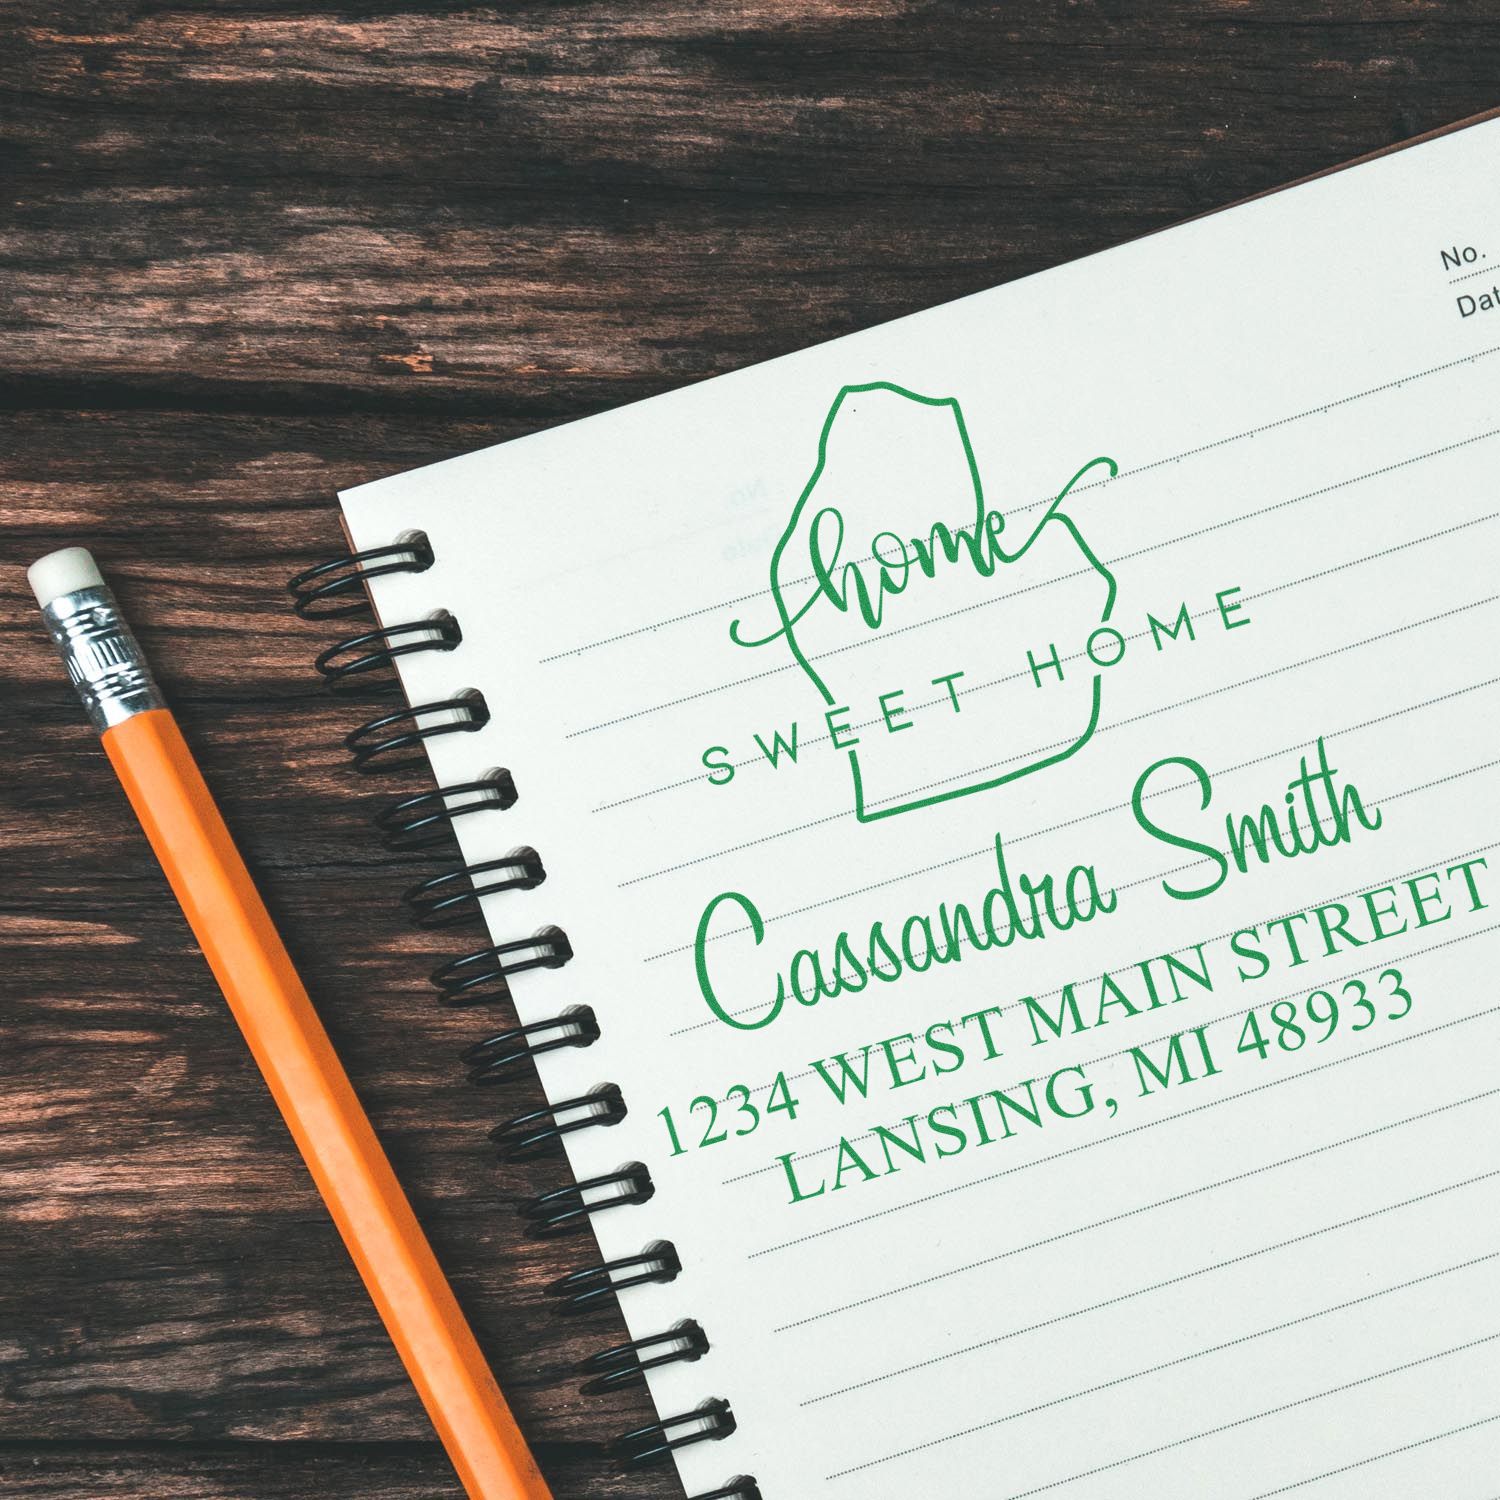 No.
home
SWEET HOME
Cassandra Smith
1234 WEST MAIN STREET
LANSING, MI 48933